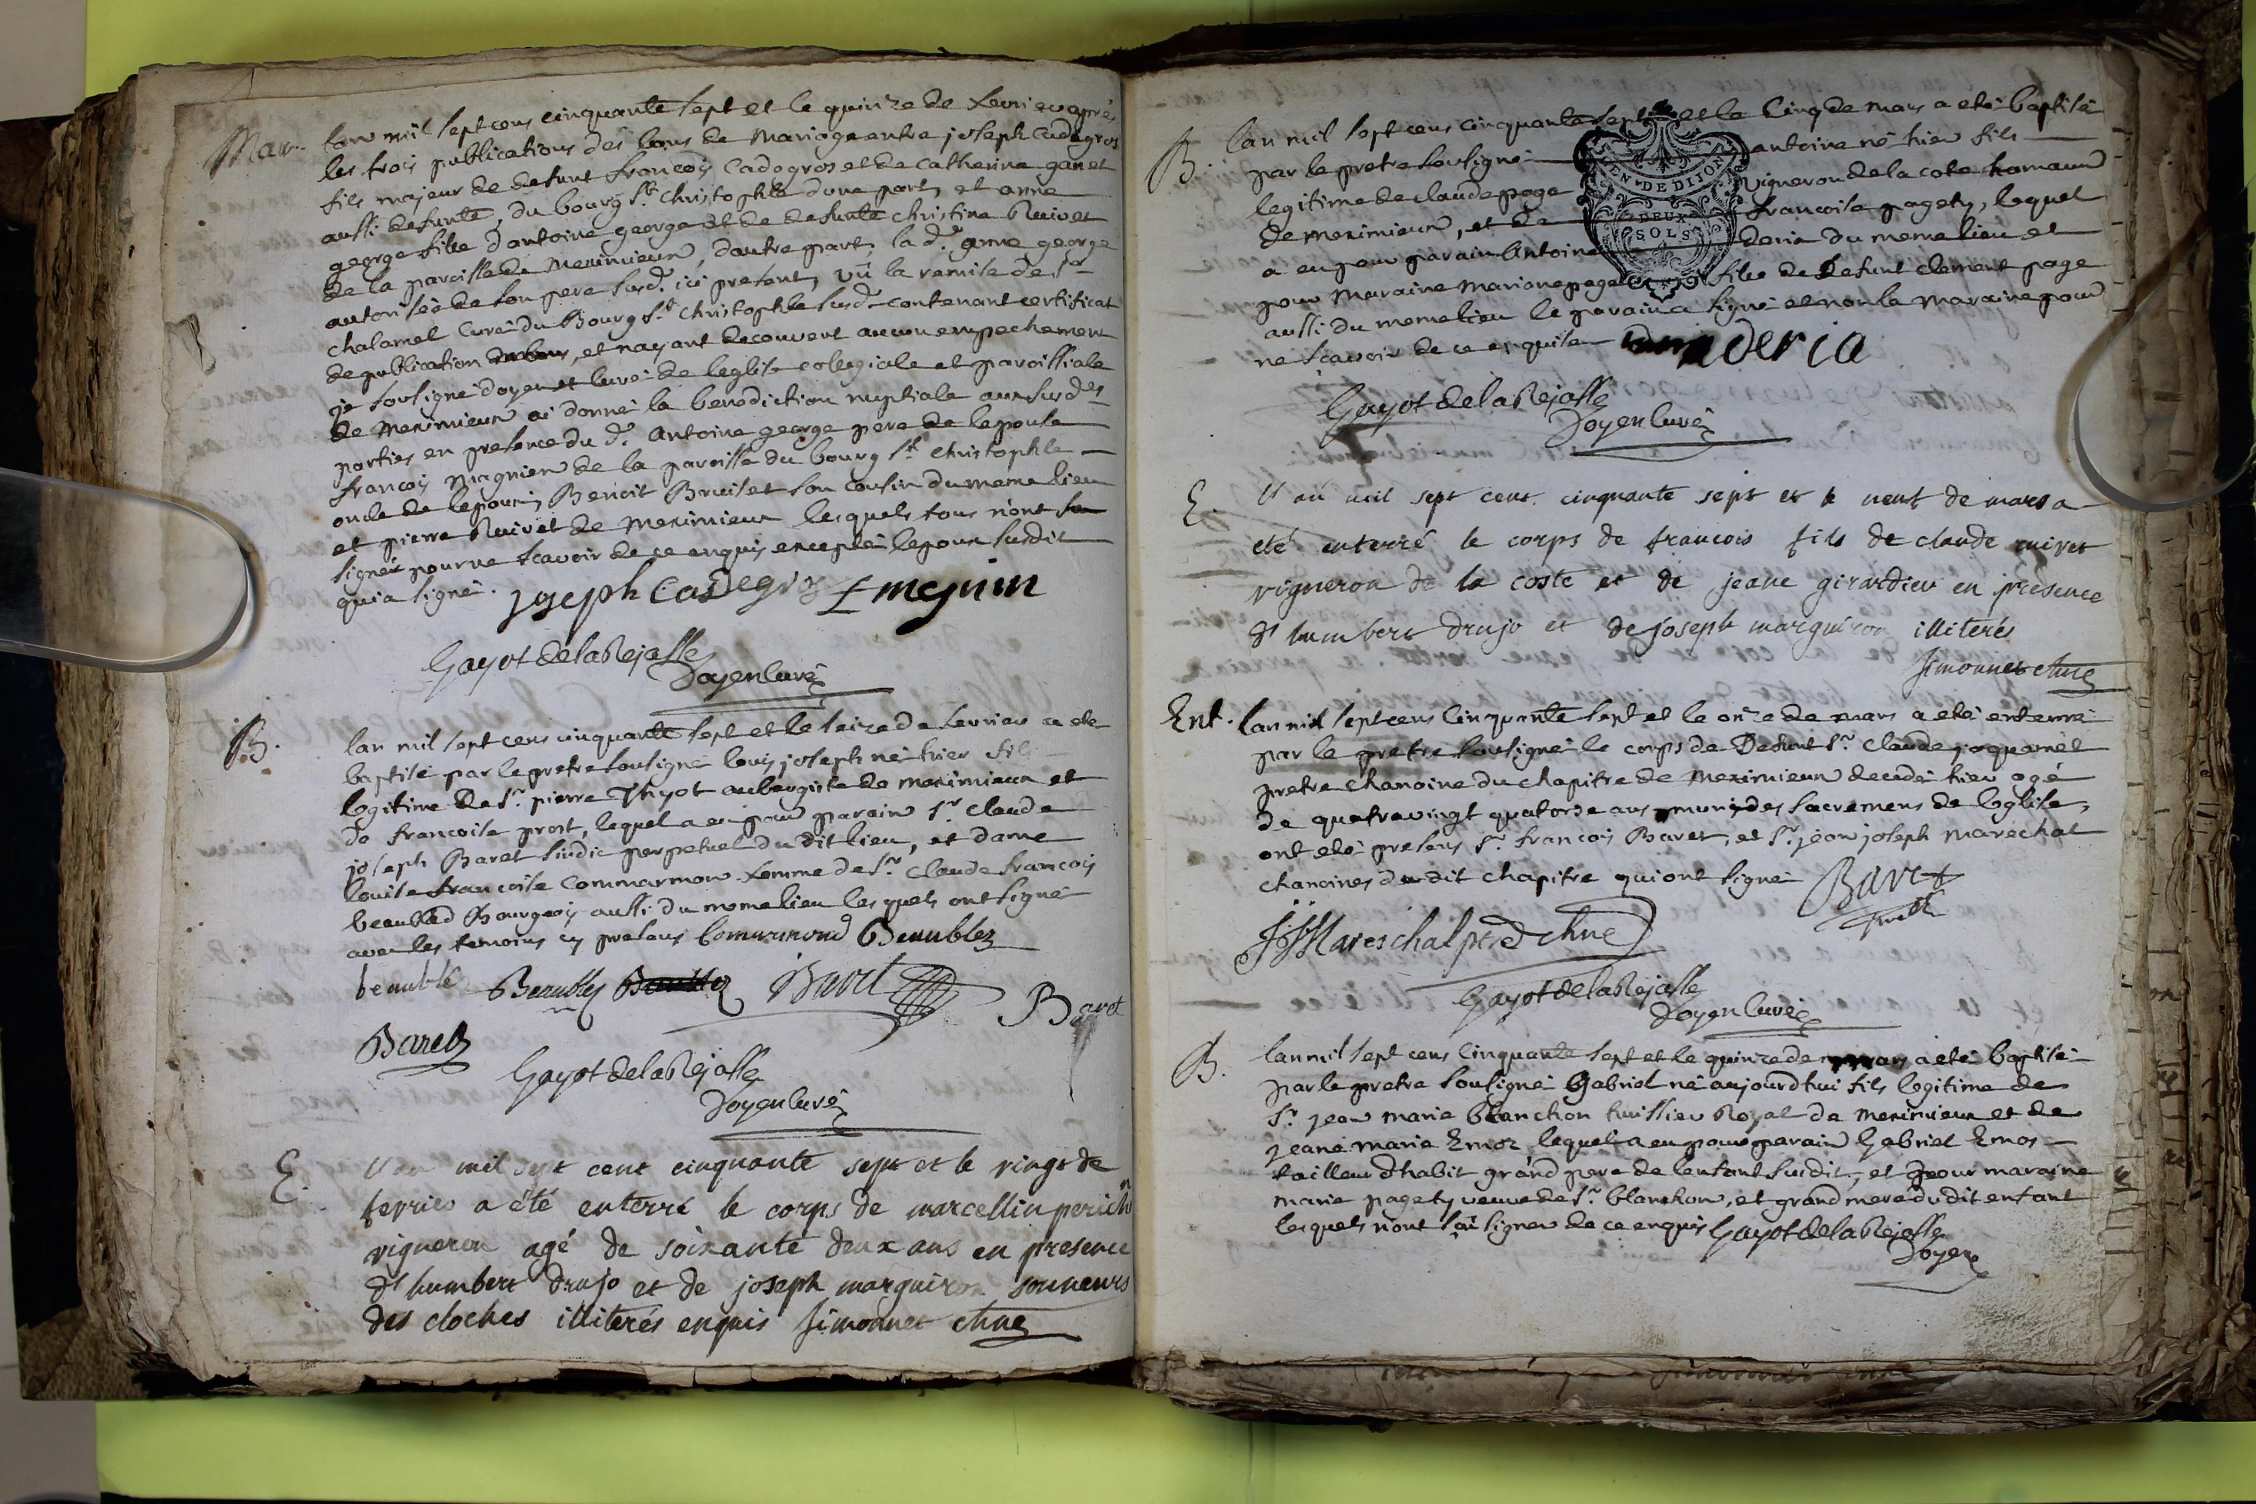 Mar.
lan mil sept cens cinquante sept et le quinze de fevrier aprés
les trois publications des bans de Mariage entre joseph Cadegros
fils majeur de defunt francois Cadogros et de Catherine ganet
aussi defunte, du bourg St Christophle dune part, et anne
george fille d'antoine george et de defunte christine Ruivet
de la paroisse de Meximieux, dautre part, la d. anne george
autorisée de son pere susd. ici present, vû la remise de Sr
chalamel Curé du Bourg St Christophle susd. contenant certificat
de publication, et nayant decouvert aucun empechement
je soussigné doyen et Curé de leglise colegiale et paroissiale
de Meximieux ai donné la benediction nuptiale aux susdes
parties en presence du d. Antoine george pere de lepouse
francois Magnien de la paroisse du bourg St Christophle
oncle de lepoux, Benoit Bruiset son cousin du meme lieu
et pierre Ruivet de Meximieux lesquels tous n'ont
signér pour ne scavoir de ce enquis excepté lepoux susdit
qui a signé. joseph Cadegros
Gayot de la Rejasse
Doyen Curé
B.
lan mil sept cens cinquante sept et le seize de fevrier a ete
baptisé par le pretre soussigné louis joseph né hier fils
legitime de Sr pierre Thyot aubergiste de meximieux et
de francoise prost, lequel a eu pour parain Sr Claude
joseph Baret sindic perpetuel du dit lieu, et dame
louise francoise Commarmon femme de Sr Claude francois
beaubled Bourgeois aussi du meme lieu lesquels ont signé
avec les temoins cy presens Commarmond Beaublez
beaublé Beaubles Baret Baret
Baret
Gayot de la Rejasse
Doyen Curé
E.
l'an mil sept cent cinquante sept et le vingt de
fevrier a été enterré le corps de marcellin perichon
vigneron agé de soixante deux ans en presence
d'humbert Drujo et de joseph marguiron sonneurs
des cloches illiterés enquis Simonnet chne
B.
lan mil sept cens cinquante sept et le Cinq de mars a eté baptisé
par le pretre soussigné antoine né hier fils
legitime de claude page vigneron de la cote hameau
de meximieux, et de francoise pagety, lequel
a eu pour parain Antoine deria du meme lieu et
pour Maraine Marione page fille de Defunt clement page
aussi du meme lieu le parain a signé et non la Maraine pour
ne scavoir de ce enquise deria
GEN. DE DIJON
DEUX
SOLS
Gayot de la Rejasse
Doyen Curé
E.
l'an mil sept cent cinquante sept et le neuf de mars a
eté enterré le corps de francois fils de claude ruivet
vigneron de la coste et de jeane girardieu en presence
d'humbert drujo et de joseph marguiron illiterés
Simonnet chne
Ent.
lan mil sept cens Cinquante sept et le onze de mars a eté enterré
par le pretre soussigné le corps de Defunt Sr Claude jaquemet
pretre chanoine du chapitre de Meximieux decedé hier agé
de quatrevingt quatorse ans muni des sacremens de leglise,
ont eté presens Sr francois Baret, et Sr jean joseph Marechal
chanoines du dit chapitre qui ont signé Baret
JJ Mareschal ptre chne
Gayot de la Rejasse
Doyen Curé
B.
lan mil sept cens Cinquante sept et le quinze de mars a eté baptisé
par le pretre soussigné Gabriel né aujourdhui fils legitime de
Sr jean marie Blanchon huissier Royal de Meximieux et de
jeane marie Emoz, lequel a eu pour parain Gabriel Emos
tailleur dhabit grand pere de lenfant susdit, et pour maraine
marie pagety veuve de Sr blanchon, et grand mere du dit enfant
lesquels n'ont scû signer de ce enquis Gayot de la Rejasse
Doyen